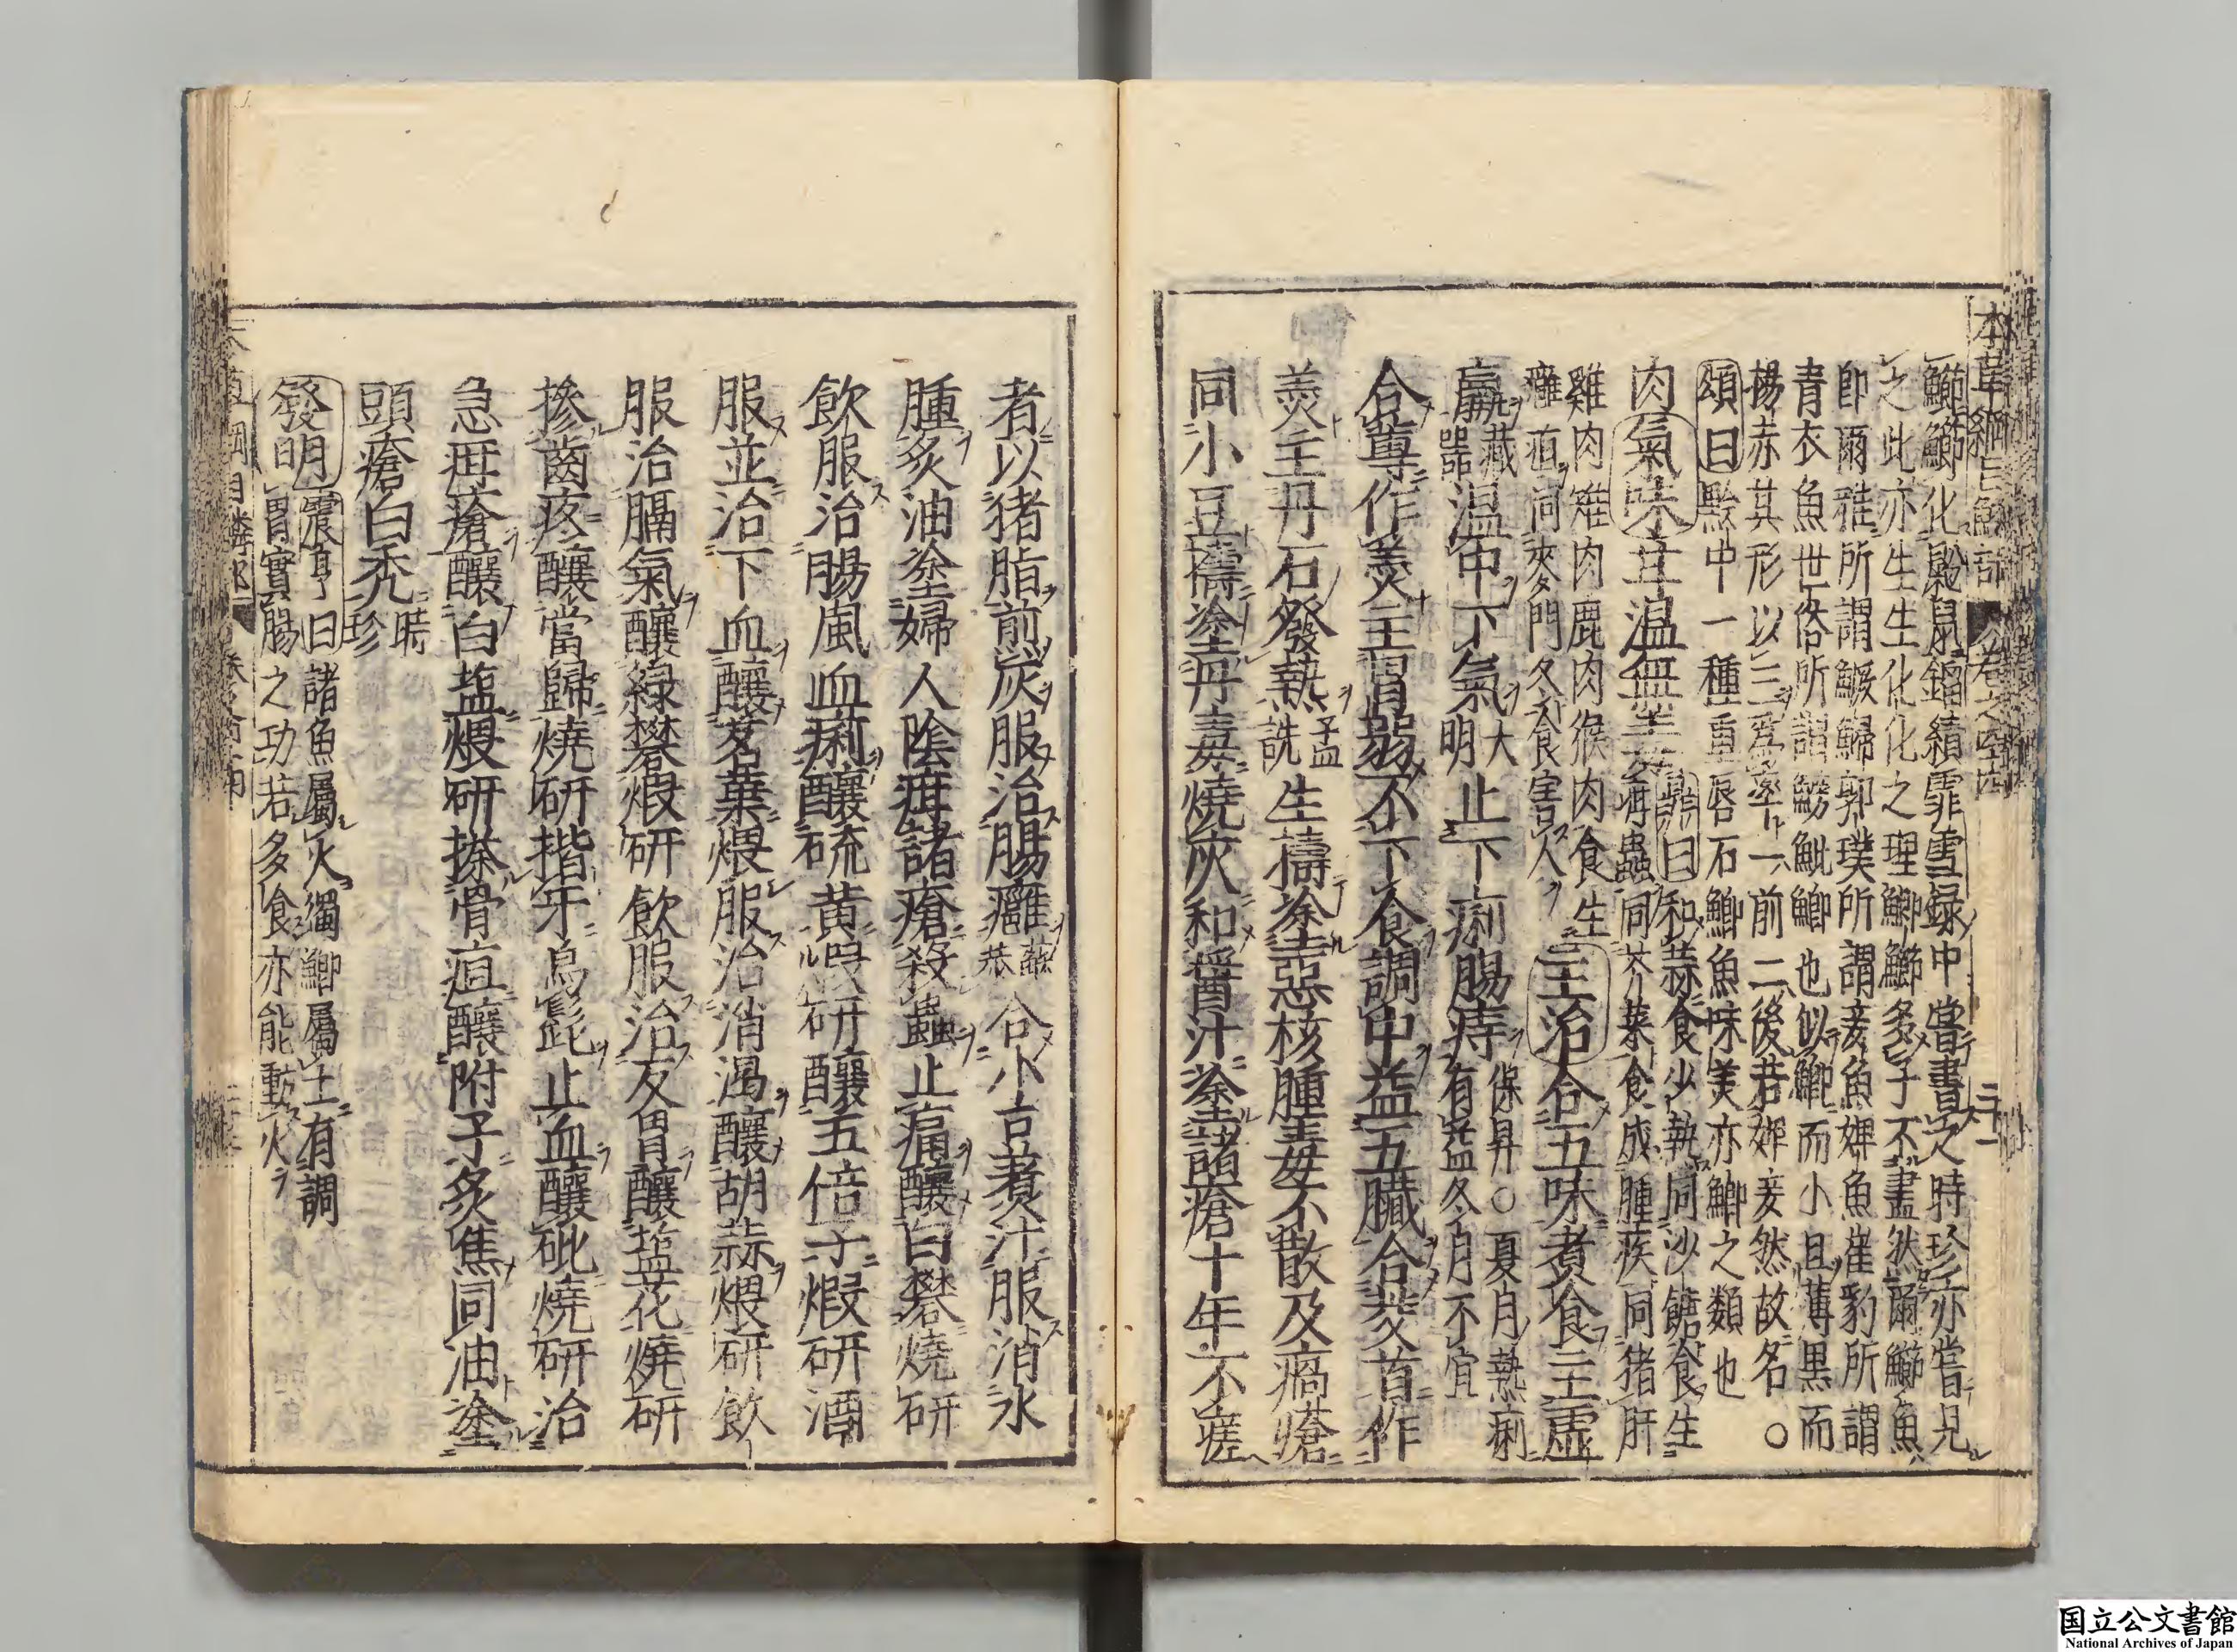 本草綱目鱗部 卷之四十四 三十一
鰤鰤化鼷鼠劉績霏雪録中嘗書之時珍亦嘗見
之此亦生生化化之理鯽鰤多子不盡然爾鰤魚
即爾雅所謂鱖鯞郭璞所謂妾魚婢魚崔豹所謂
青衣魚世俗所謂鰟魮鯽也似鯽而小且薄黒而
揚赤其形以三爲率一前二後若婢妾然故名○
頌曰黔中一種重唇石鯽魚味美亦鯽之類也
肉氣味甘温無毒 鼎曰和蒜食少熱同沙餹食生
疳蟲同芥菜食成腫疾同猪肝
雞肉雉肉鹿肉猴肉食生
癰疽同麥門冬食害人 主治合五味煮食主虚
羸藏器温中下氣大明止下痢腸痔保昇○夏月熱痢
有益冬月不宜
合蓴作羹主胃弱不下食調中益五臟合茭首作
羹主丹石發熱孟詵生擣塗惡核腫毒不散及瘑瘡
同小豆擣塗丹毒燒灰和酱汁塗諸瘡十年不瘥
者以猪脂煎灰服治腸癰蘇恭合小豆煮汁服消水
腫炙油塗婦人陰疳諸瘡殺蟲止痛釀白礬燒研
飲服治腸風血痢釀硫黄煅研釀五倍子煅研酒
服並治下血釀茗葉煨服治消渇釀胡蒜煨研飲
服治膈氣釀緑礬煅研飲服治反胃釀盐花燒研
摻齒疼釀當歸燒研揩牙烏髭止血釀砒燒研治
急疳瘡釀白盐煨研搽骨疽釀附子炙焦同油塗
頭瘡白禿時珍
發明 震亨曰諸魚屬火獨鯽屬土有調
胃實腸之功若多食亦能動火
国立公文書館
National Archives of Japan